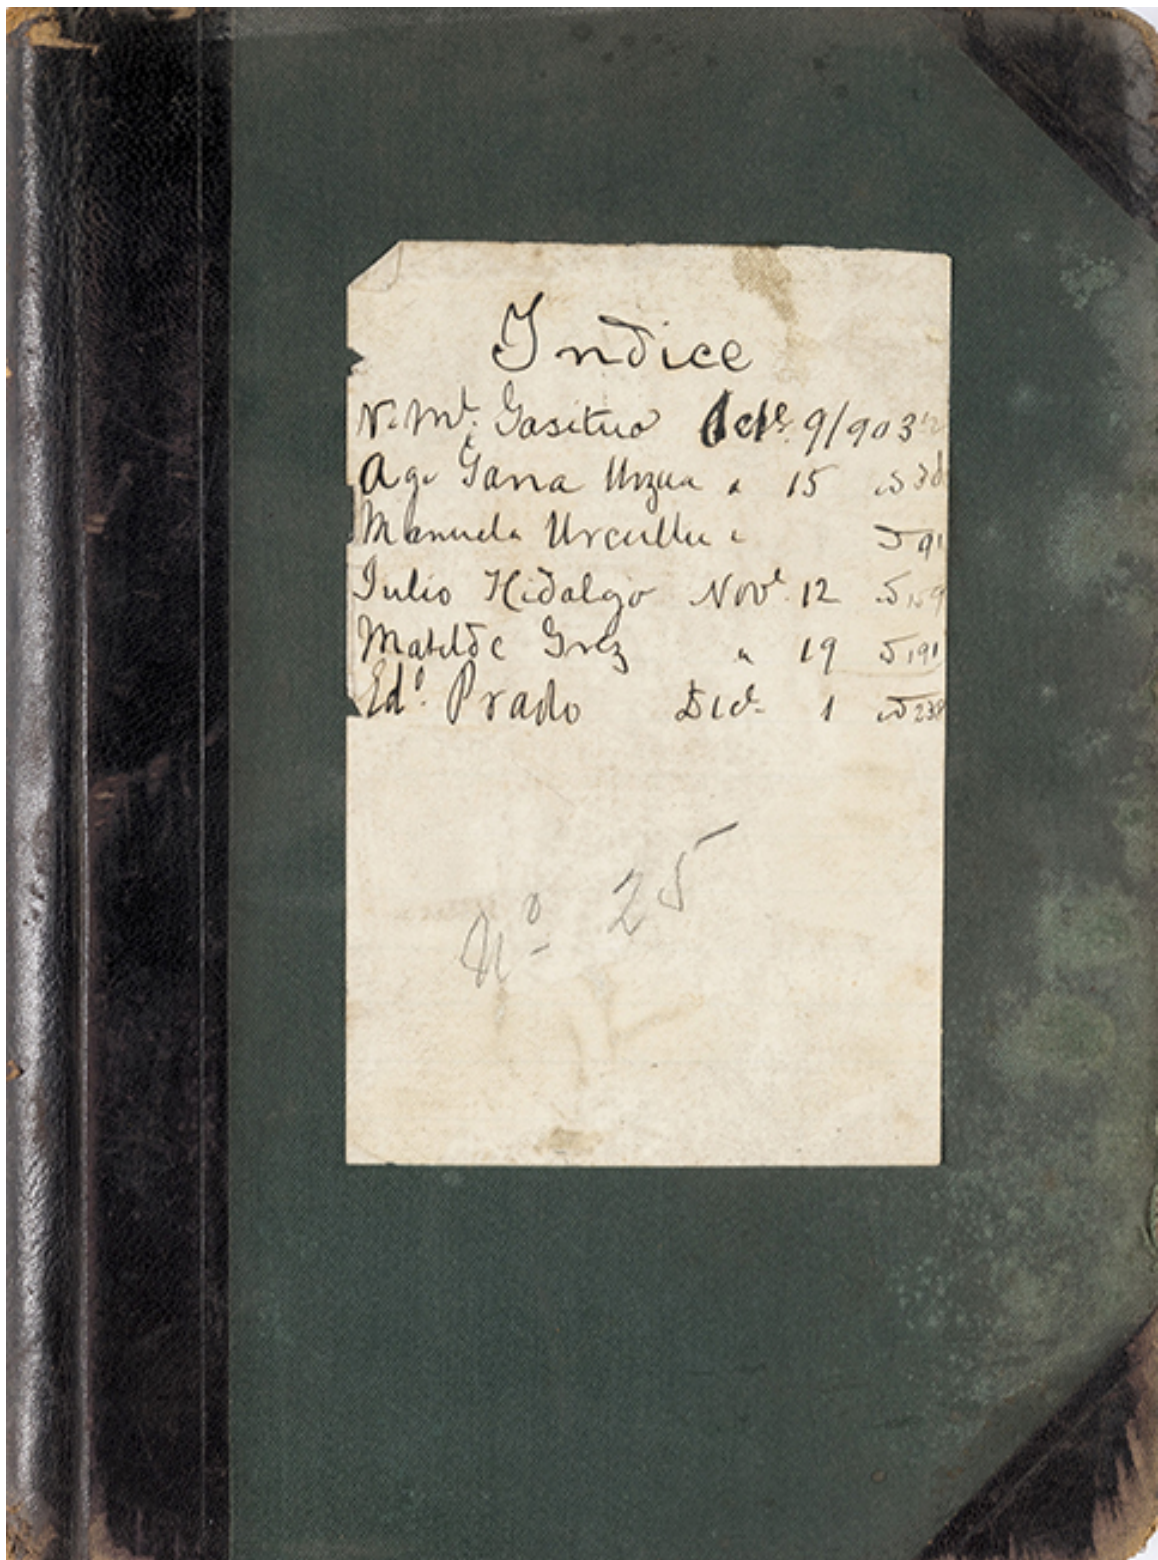 Indice
N. Ml. Gasitua Octe. 9/903
Ag. Gana Urzua " 15
Manuela Urcullu " 91
Julio Hidalgo Nove. 12 159
Matilde Grez " 19 191
Edo. Prado Dice. 1 238
No 25